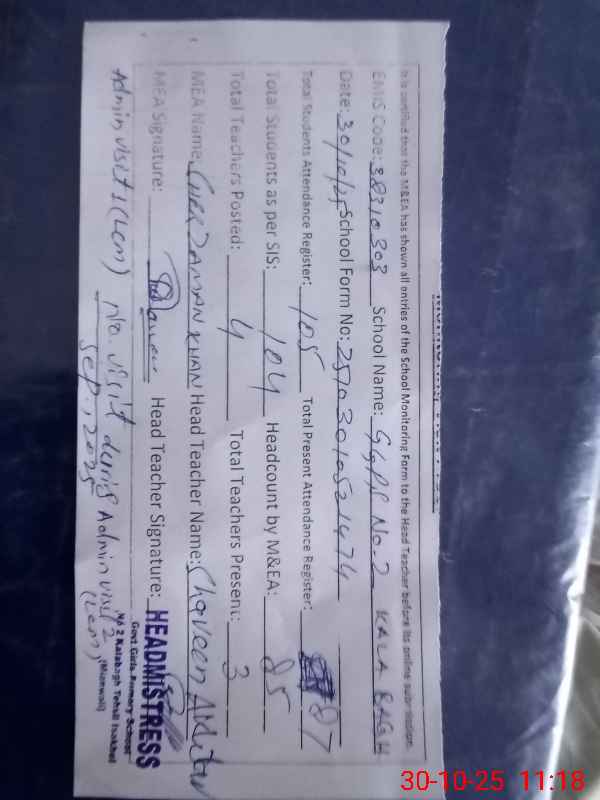 It is certified that the M&EA has shown all entries of the School Monitoring Form to the Head Teacher before its online submission.
EMIS Code: 38310303 School Name: GGPS No. 2 KALA BAGH
Date: 30/10/25 School Form No: 25103010521474
Total Students Attendance Register: 105 Total Present Attendance Register: 87
Total Students as per SIS: 104 Headcount by M&EA: 85
Total Teachers Posted: 4 Total Teachers Present: 3
MEA Name: ZAMAN KHAN Head Teacher Name: Akhtar
MEA Signature: Head Teacher Signature:
HEADMISTRESS
Govt Girls Primary School
No 2 Kalabagh Tehsil Isakhel
(Mianwali)
Admin visit 1 (Lcm) No visit during Admin visit 2 (Lcm)
Sep., 2025
30-10-25 11:18